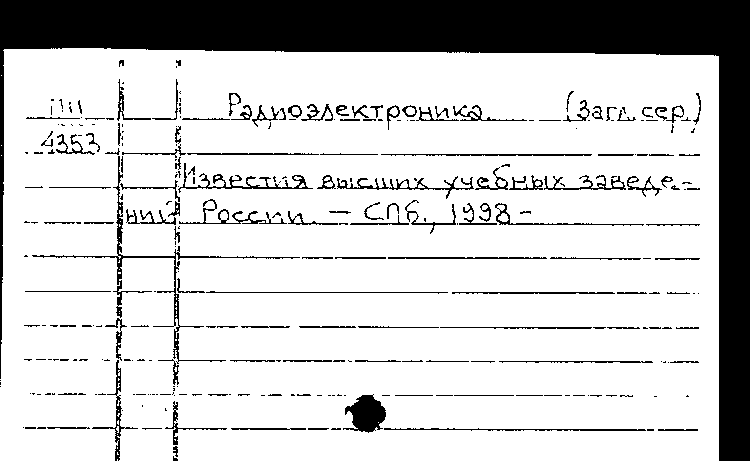 Радиоэлектроника. (Загл. сер.)
4353
Известия высших учебных заведе-
ний России. — СПб., 1998 -